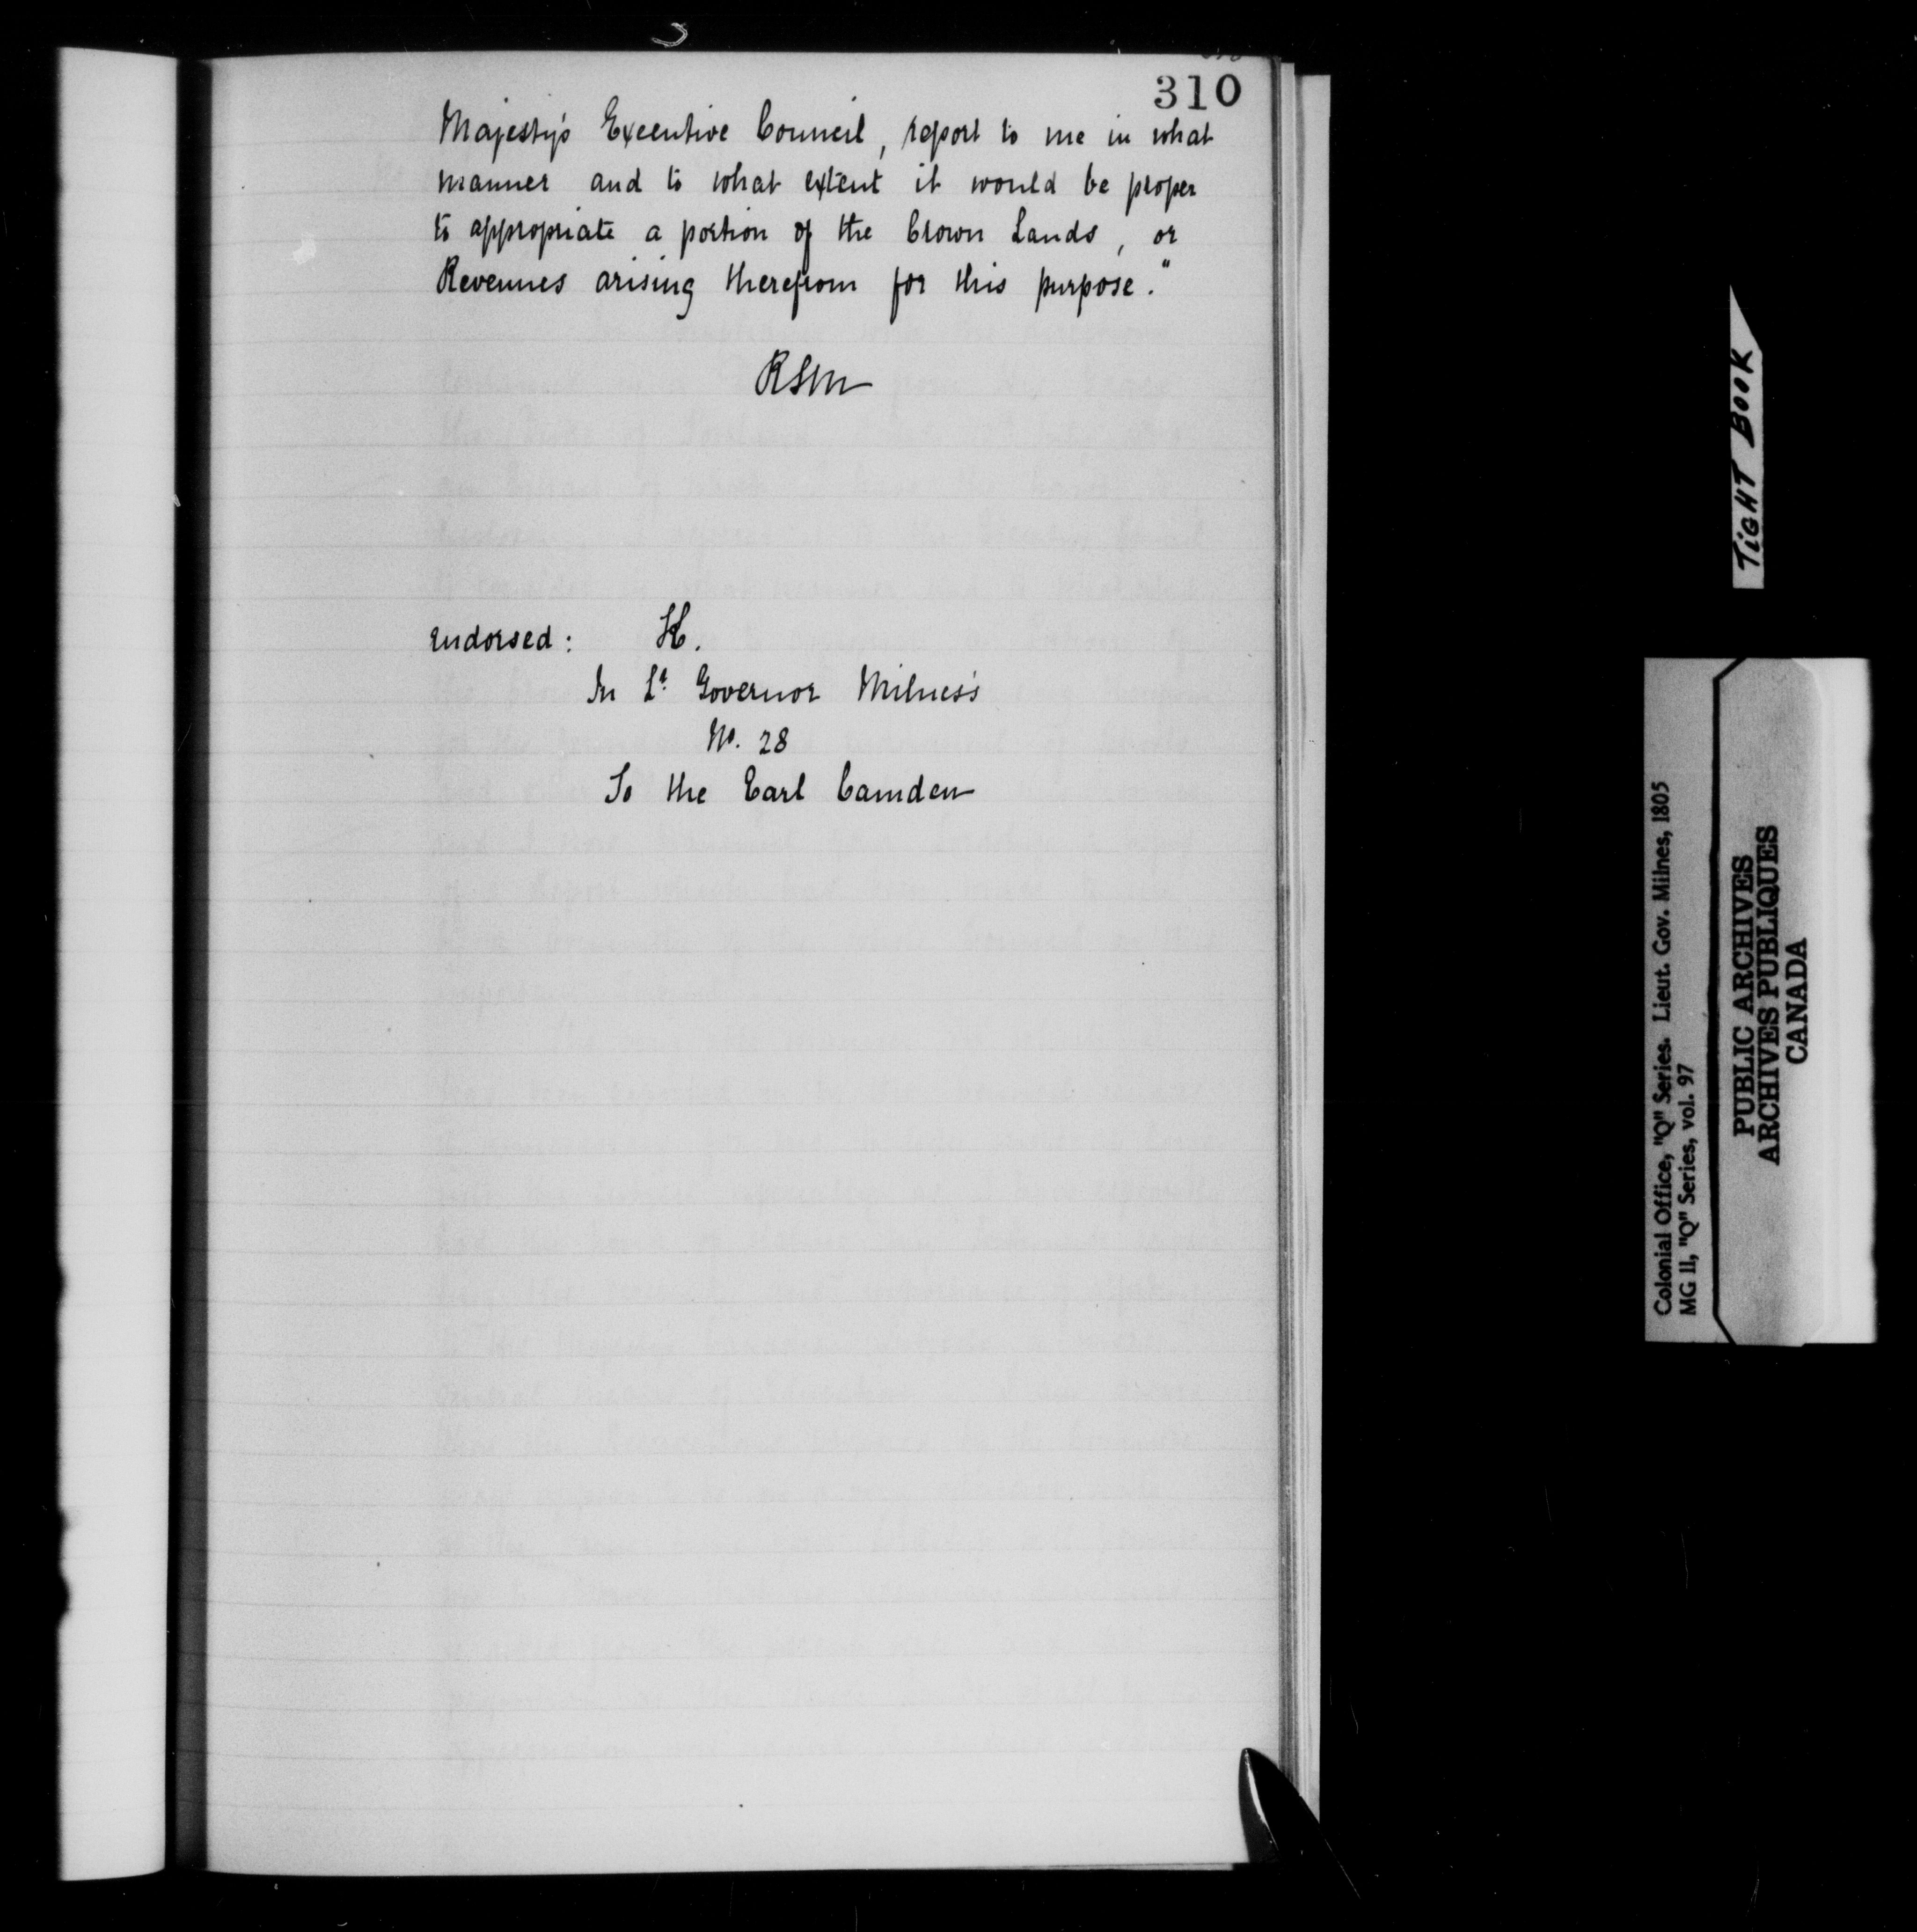 310
Majesty's Executive Council, report to me in what
manner and to what extent it would be proper
to appropriate a portion of the Crown Lands, or
Revenues arising therefrom for this purpose."
RSM
endorsed: H.
In Lt. Governor Milnes's
No. 28
To the Earl Camden
TIGHT BOOK
Colonial Office, "Q" Series. Lieut. Gov. Milnes, 1805
MG 11, "Q" Series, vol. 97
PUBLIC ARCHIVES
ARCHIVES PUBLIQUES
CANADA